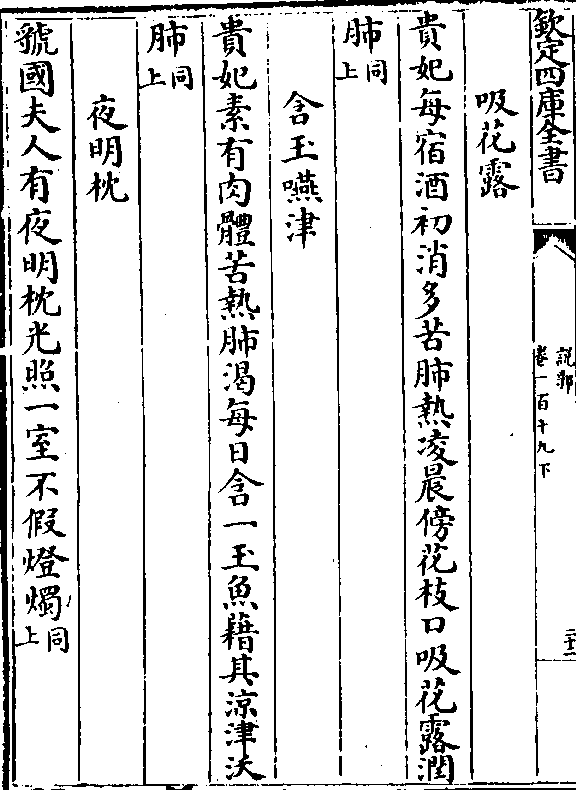 欽定四庫全書
說郛
卷一百十九下
吸花露
貴妃每宿酒初消多苦肺熱凌晨傍花枝口吸花露潤
肺同上
含玉嚥津
貴妃素有肉體苦熱肺渴每日含一玉魚藉其涼津沃
肺同上
夜明枕
虢國夫人有夜明枕光照一室不假燈燭同上